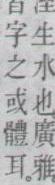 生水也廣雅
音字之或體耳。